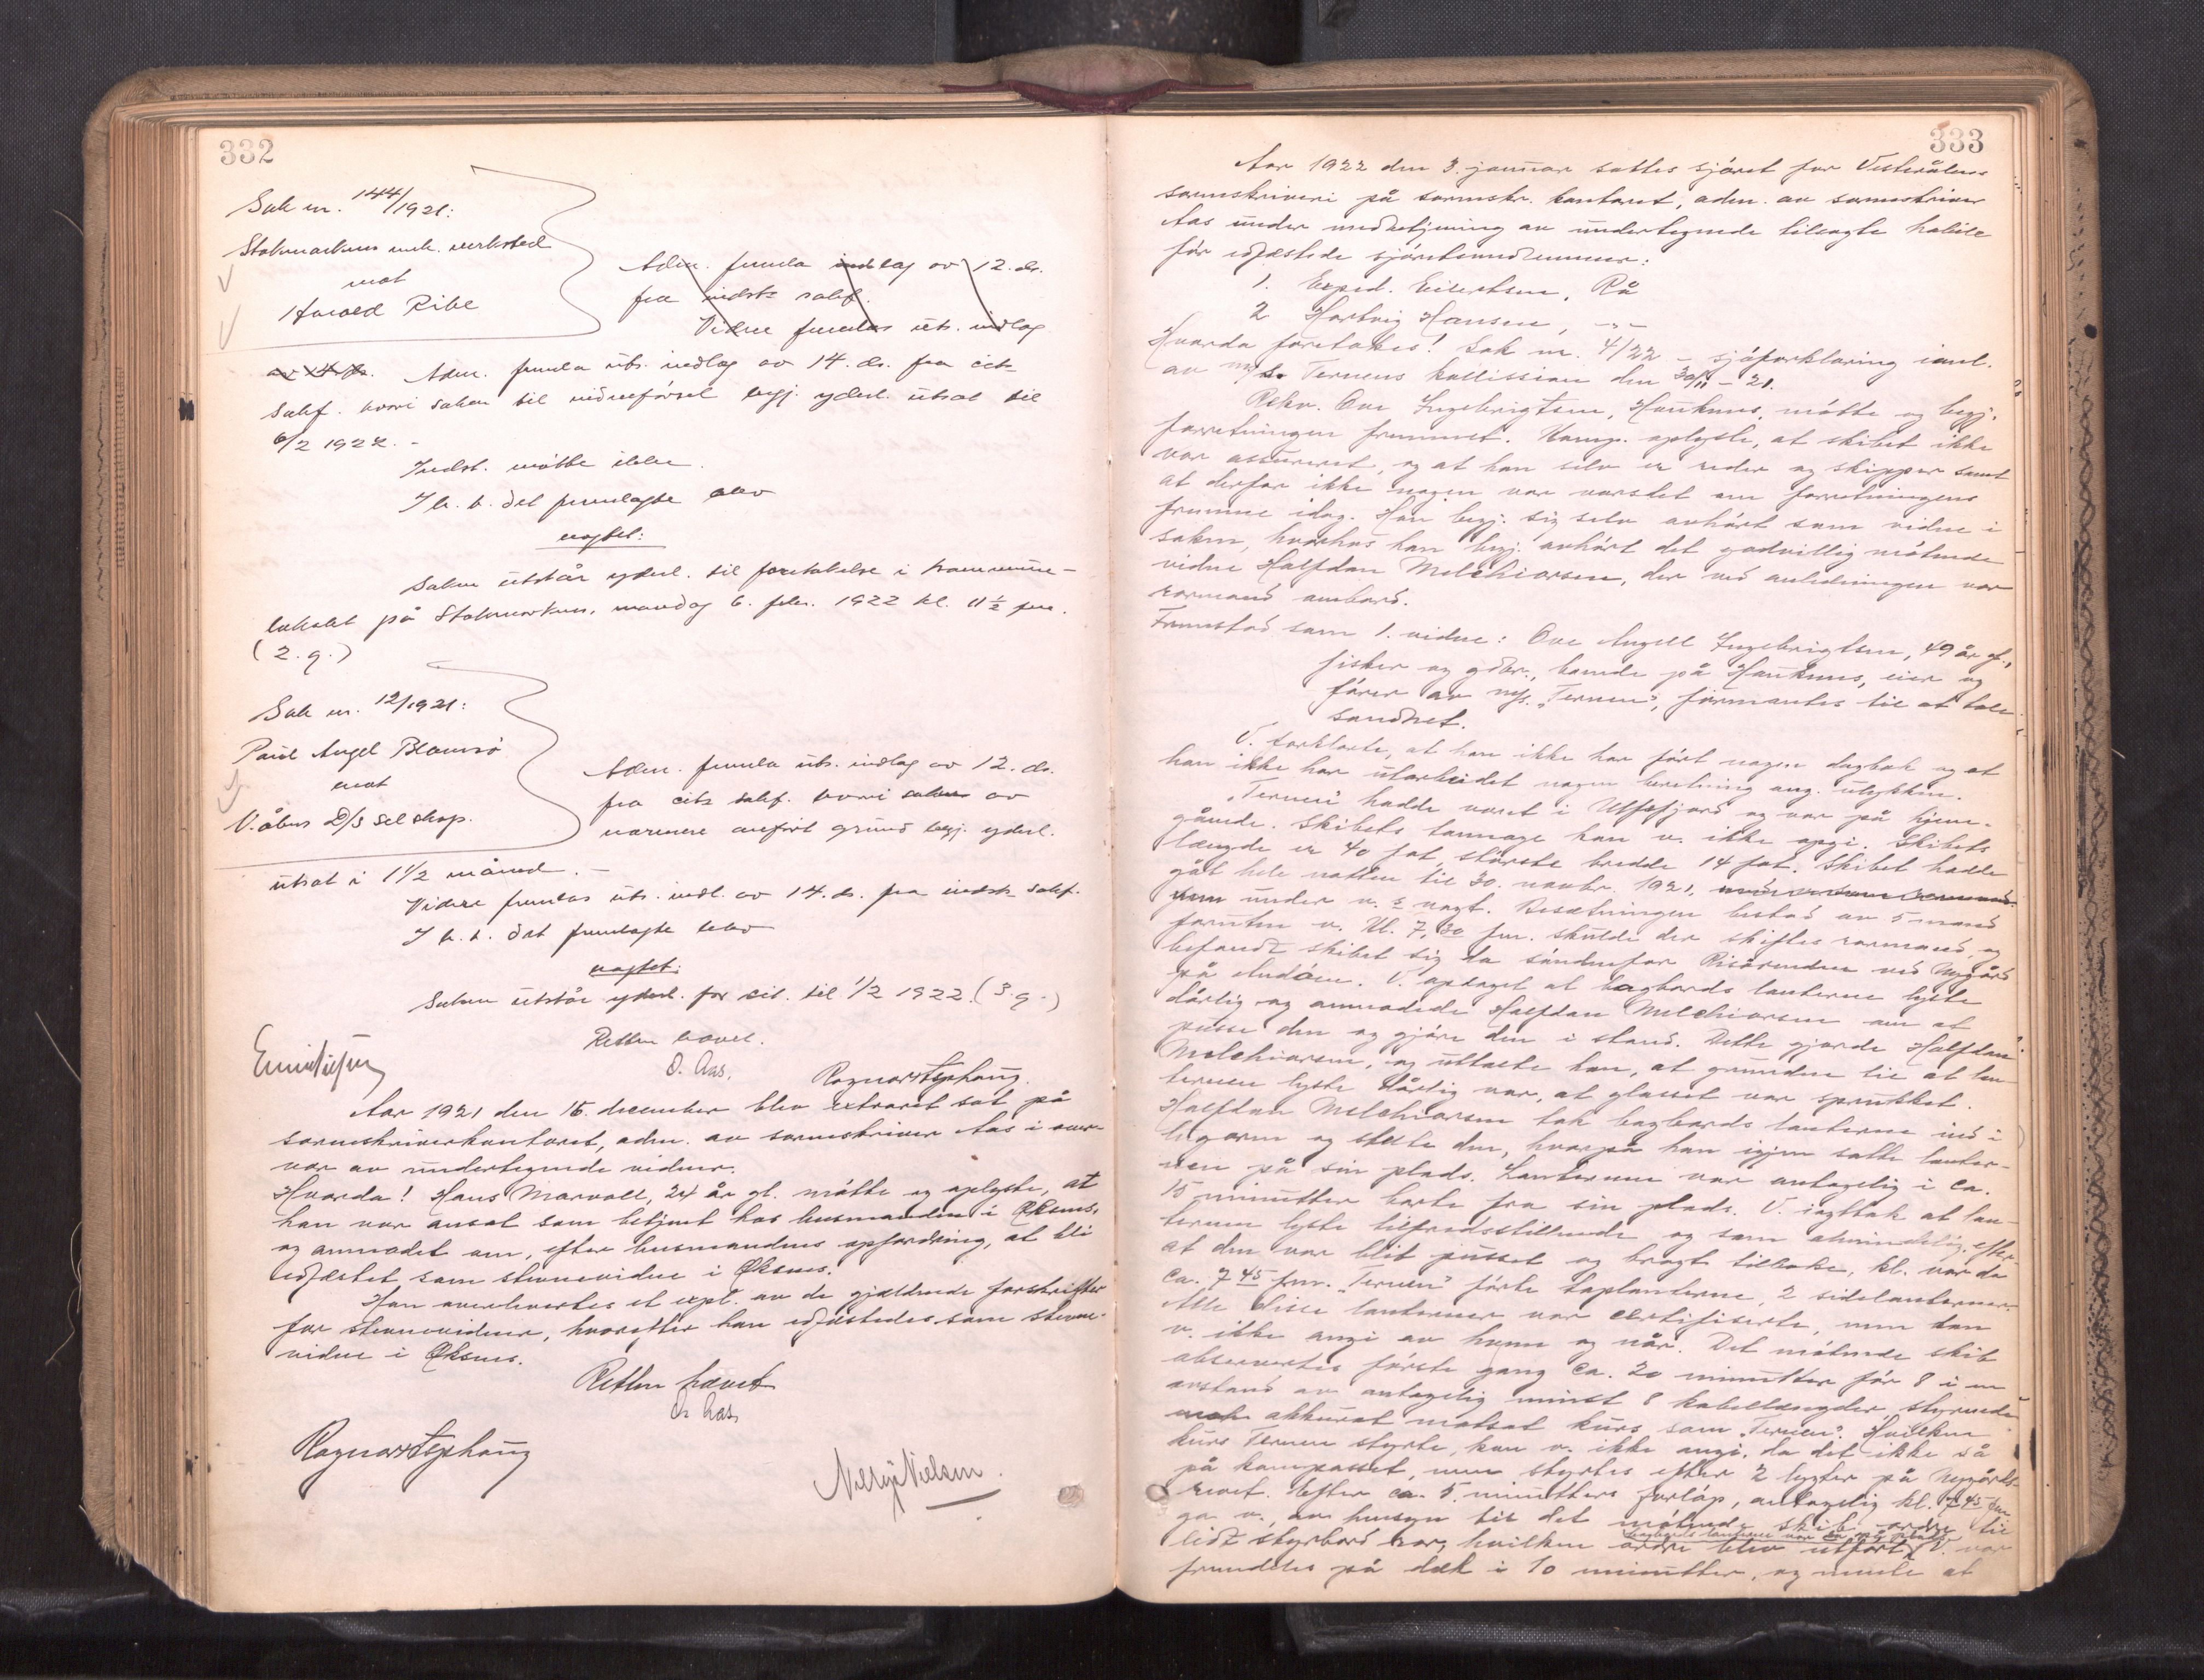 332
Sak nr. 144/1921:
Stokmarknes mek. verksted
mot
Harald Ribe
Adm. fremla indlæg av 12. ds.
fra indst. sakf.
Videre fremlas uts. indlæg
av 14. ds. Adm. fremla uts. indlæg av 14. ds. fra cit.
sakf. hvori saken til vidneførsel begj. yderl. utsat til
6/2 1922. -
Indst. møtte ikke.
I h. t. det fremlagte blev
vogtet:
Saken utstår yderl. til foretakelse i kommune-
lokalet på Stokmarknes, mandag 6. febr. 1922 kl. 11 1/2 fm.
(2. g.)
Sak nr. 12/1921:
Paul Angel Blomsö
mot
V.ålens D/S selskap.
Adm. fremla uts. indlæg av 12. ds.
fra cits sakf. hvori saken av
nærmere anført grund begj. yderl.
utsat i 1 1/2 måned. -
Videre fremlas uts. indl. av 14. ds. fra indst. sakf.
I h. t. det fremlagte blev
vogtet:
Saken utstår yderl. for cit. til 1/2 1922. (3. g.)
Retten hævet.
O. Aas.
Ragnar Hephaug.
Aar 1921 den 15. december blev extraret sat på
sorenskriverkontoret, adm. av sorenskriver Aas i over-
vær av undertegnede vidner.
Hvorda! Hans Marvoll, 24 år gl. møtte og oplyste, at
han var ansat som betjent hos lensmanden i Øksnes,
og anmodet om, efter lensmandens opfordring, at bli
edfæstet som stevnevidne i Øksnes.
Han overlevertes et expl. av de gjældende forskrifter
for stevnevidner, hvorefter han edfæstedes som stevne-
vidne i Øksnes.
Retten hævet
O. Aas
Ragnar Hephaug
Nelly Nielsen.
333
Aar 1922 den 3. januar sattes sjøret for Vesterålens
sorenskriveri på sorenskr. kontoret, adm. av sorenskriver
Aas under medbetjening av undertegnede tilsagte habile
før edfæstede sjøretsmedlemmer:
1. Exped. Eilertsen, Rå
2. Hartvig Hansen, -"-
Hvorda foretokes! Sak nr. 4/22 - sjøforklaring i anl.
av m/s. Ternens kollission den 30/11 - 21.
Rekv. Ove Ingebrigtsen, Hauknes, møtte og begj.
forretningen fremmet. Komp. oplyste, at skibet ikke
var assureret, og at han selv er reder og skipper samt
at derfor ikke nogen var varslet om forretningens
fremme idag. Han begj. sig selv avhørt som vidne i
saken, hvorhos han begj. avhørt det godvillig møtende
vidne Halfdan Melchiorsen, der ved anledningen var
rormand ombord.
Fremstod som 1. vidne: Ove Angell Ingebrigtsen, 49 år gl.,
fisker og gdbr., boende på Hauknes, eier og
fører av m/s. "Ternen", formantes til at tale
sandhet.
V. forklarte, at han ikke har ført nogen dagbok og at
han ikke har utarbeidet nogen beretning ang. ulykken.
"Ternen" hadde været i Ulfsfjord og var på hjem-
gående. Skibets tonnage kan v. ikke opgi. Skibets
længde er 40 fot, største bredde 14 fot. Skibet hadde
gåt hele natten til 30. novbr. 1921,
under v. s vagt. Besætningen bestod av 5 mand
foruten v. Kl. 7,30 fm. skulde der skiftes rormand, og
befandt skibet sig da søndenfor Risørenden ved Nygård
på Andøen. V. opdaget at bagbords lanterne lyste
dårlig og anmodede Halfdan Melchiorsen om at
pusse den og gjøre den i stand. Dette gjorde Halfdan
Melchiorsen, og uttalte han, at grunden til at lan-
ternen lyste dårlig var, at glasset var sprukket.
Halfdan Melchiorsen tok bagbords lanterne ind i
lugaren og stelte den, hvorpå han igjen satte lanter-
nen på sin plads. Lanternen var antagelig i ca.
15 minutter borte fra sin plads. V. iagttok at lan-
ternen lyste tilfredsstillende og som almindelig, efter
at den var blit pusset og bragt tilbake, kl. var da
ca. 7 45 fm. "Ternen" førte toplanterne, 2 sidelanterner.
Alle disse lanterner var certifiserte, men kan
v. ikke angi av hvem og når. Det møtende skib
observertes første gang ca. 20 minutter før 8 i en
avstand av antagelig minst 8 kabellængder, styrende
akkurat motsat kurs som "Ternen". Hvilken
kurs Ternen styrte, kan v. ikke angi, da det ikke så
på kompasset, men styrtes efter 2 lygter på Nygårds-
revet. Efter ca. 5 minutters forløp, antagelig kl. 7 45 fm
ga v., av hensyn til det møtende skib ordre til
bagbords lanterne var da på plads
lidt styrbord ror, hvilken ordre blev utført. V. var
fremdeles på dæk i 10 minutter, og mente at